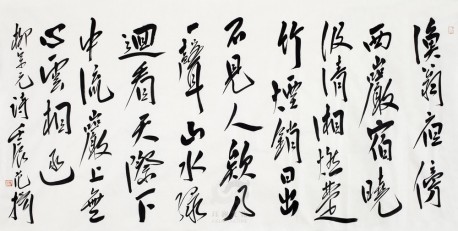 漁翁夜傍
西巖宿曉
汲清湘燃楚
竹煙銷日出
不見人欸乃
一聲山水綠
迴看天際下
中流巖上無
心雲相逐
柳宗元詩壬辰范